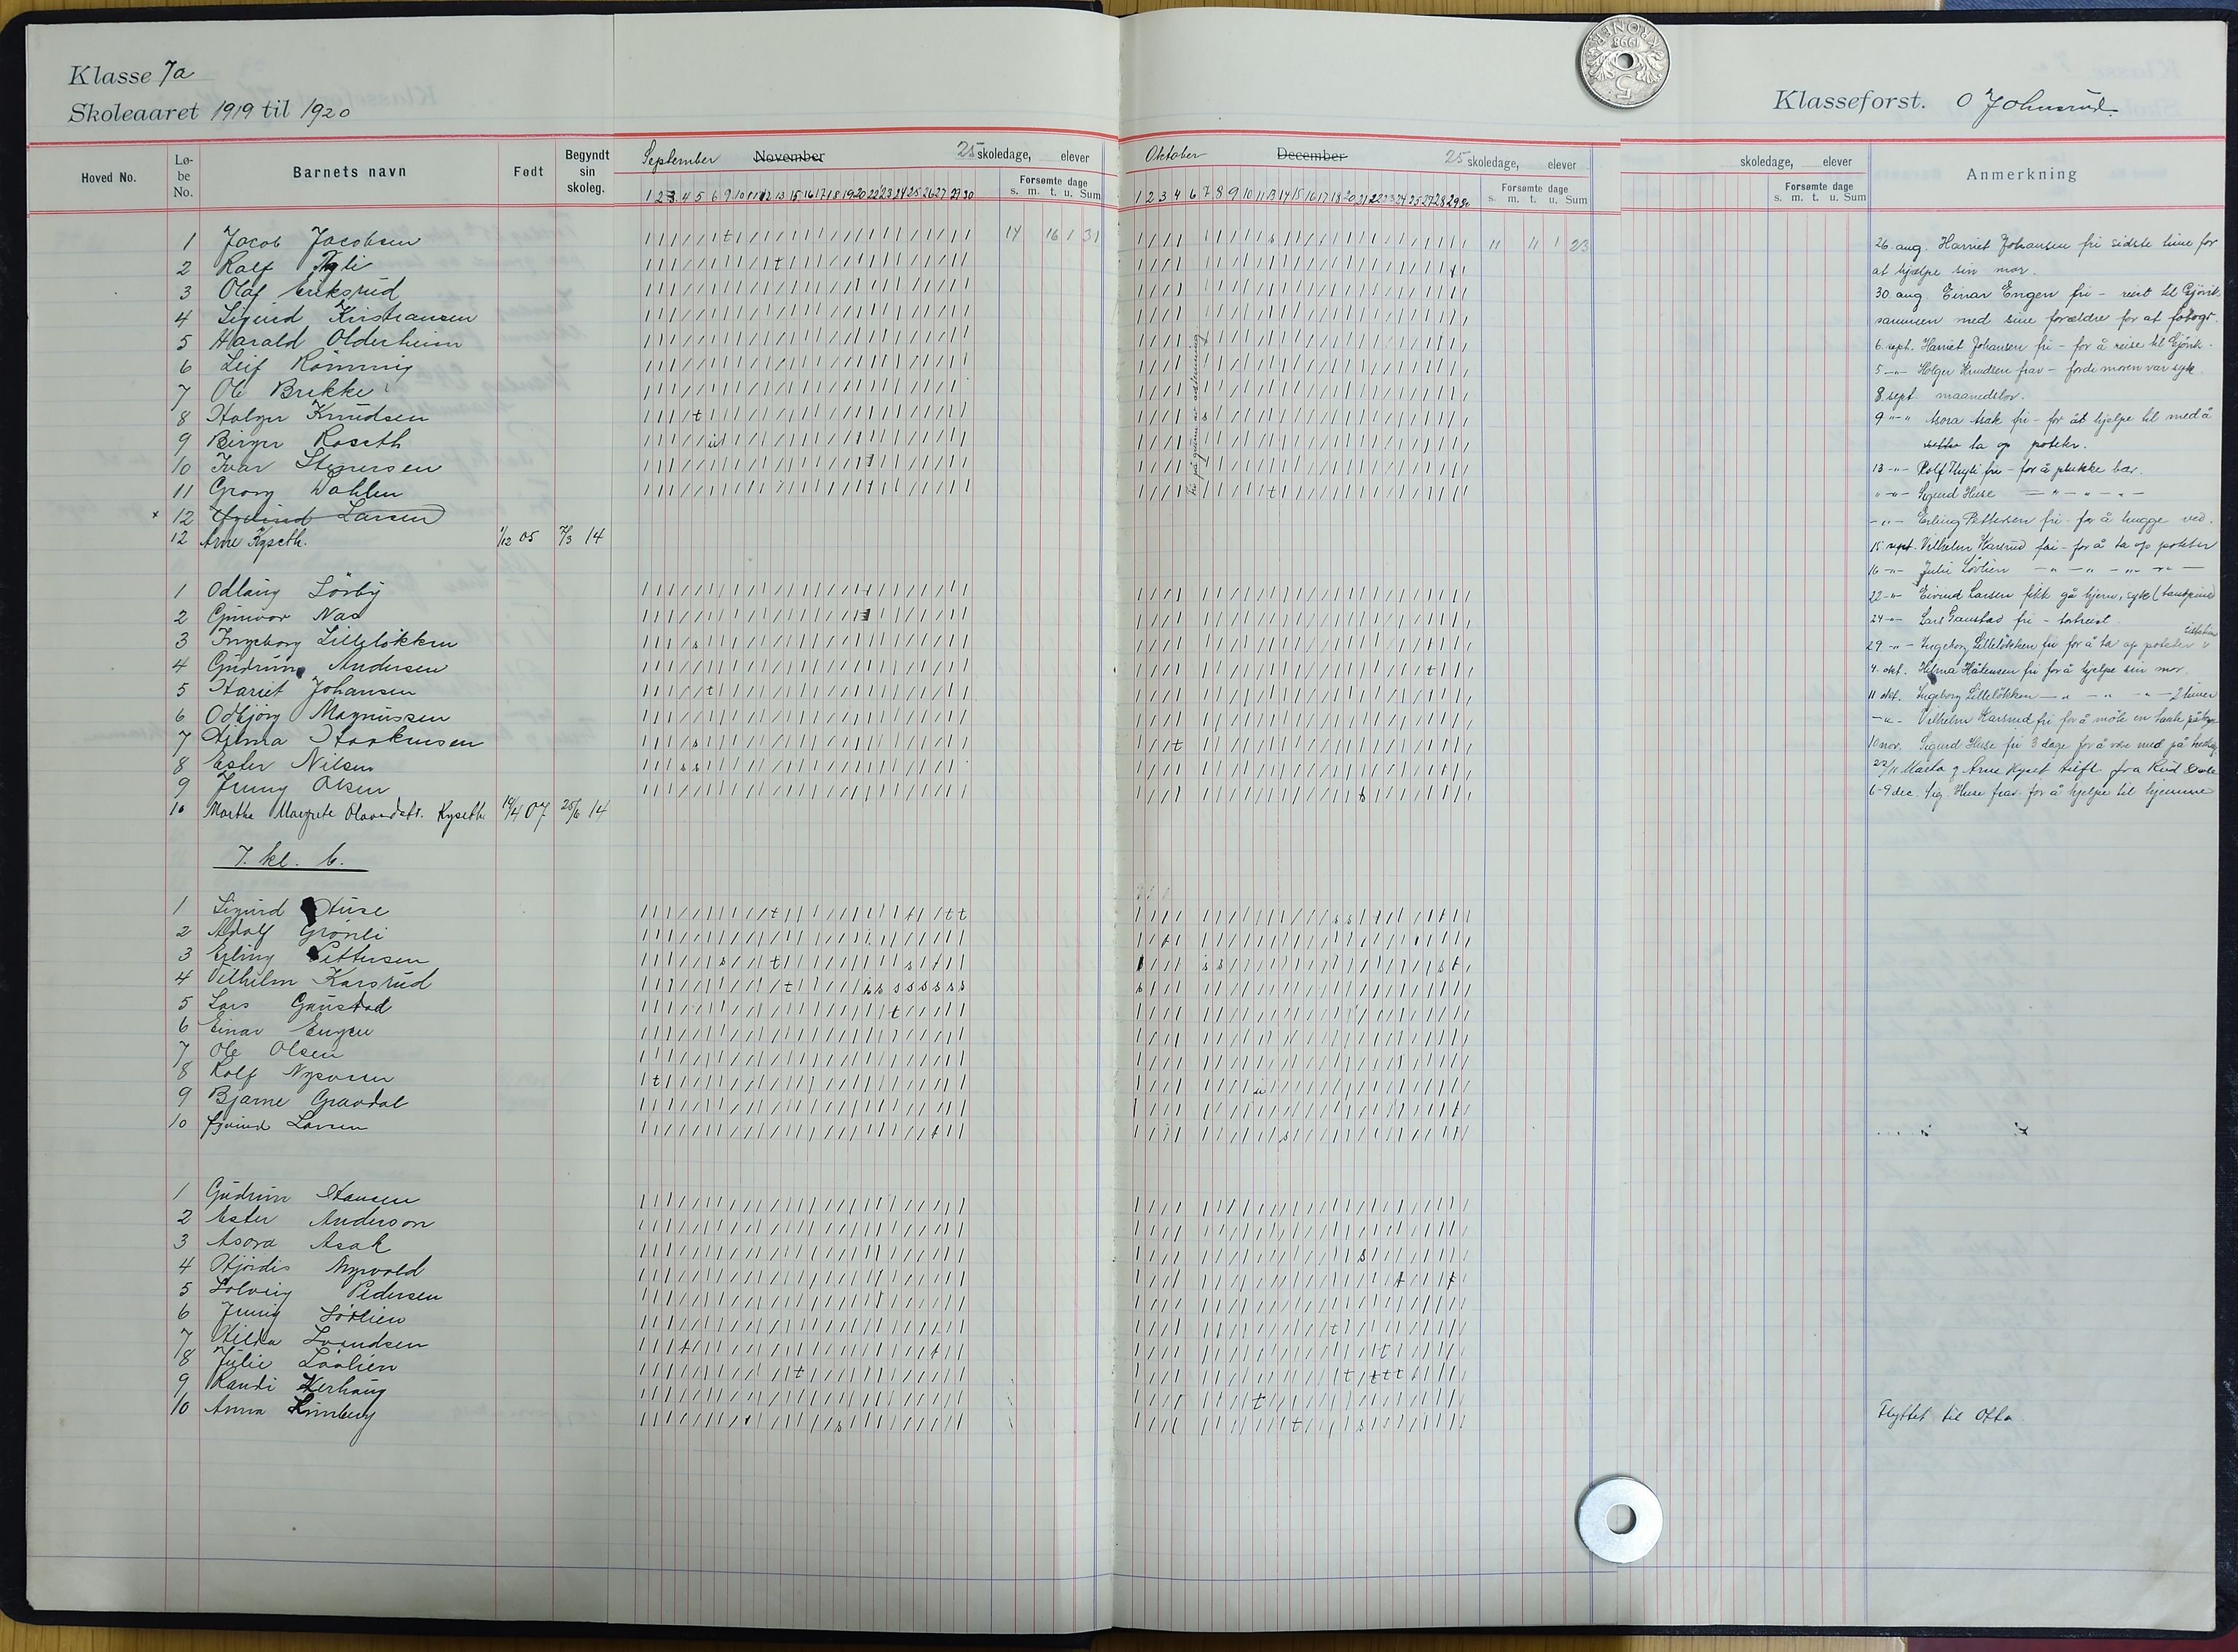 Klasse 7a
Skoleaaret 1919 til 1920
Klasseforst. O Johnsrud.
Hoved No. Lø-be No. Barnets navn Født Begyndt sin skoleg.
September November 25 skoledage, elever
Forsømte dage
s. m. t. u. Sum
Oktober December 25 skoledage, elever
Forsømte dage
s. m. t. u. Sum
skoledage, elever
Forsømte dage
s. m. t. u. Sum
Anmerkning
1 2 3 4 5 6 9 10 11 12 13 15 16 17 18 19 20 22 23 24 25 26 27 29 30
1 2 3 4 6 7 8 9 10 11 13 14 15 16 17 18 20 21 22 23 24 25 27 28 29 30
1 Jacob Jacobsen 14 16 1 31 11 11 1 23
2 Ralf
3 Olaf Eriksrud
4 Sigurd Kristiansen
5 Harald Olderheim
6 Leif Rømming
7 Ole Brekke
8 Holger Knudsen
9 Birger Roseth
10 Ivar Stenersen
11 Georg Dahlen
x 12 Øyvind Larsen
12 Arne Kyseth. 1/12 05 14
1 Odlaug Sørby
2 Gunvor Næs
3 Ingeborg Lilleløkken
4 Gudrun Andersen
5 Hariet Johansen
6 Odbjørg Magnussen
7 Hilma Haakensen
8 Ester Nilsen
9 Jenny Olsen
10 Martha Margrete Olavsdatr. Kyseth 14/4 07 25/6 14
7. kl. b.
1 Sigurd Huse
2 Adolf Grønli
3 Erling Pettersen
4 Vilhelm Karsrud
5 Lars Gaustad
6 Einar Engen
7 Ole Olsen
8 Rolf
9 Bjarne Gravdal
10 Øyvind Larsen
1 Gudrun Hansen
2 Ester Anderson
3 Asora Asak
4 Hjørdis Myrvold
5 Solveig Pedersen
6 Jenny Sørlien
7 Hilda Svendsen
8 Julie Løvlien
9 Randi Herhaug
10 Anna Linnberg
fri på grunn av
26. aug. Harriet Johansen fri sidste time for
at hjælpe sin mor.
30. aug. Einar Engen fri – reist til Gjøvik
sammen med sine forældre for at fotogr.
6. sept. Harriet Johansen fri – for å reise til Gjøvik.
5 –"– Holger Knudsen frav – fordi moren var syk.
8 sept. maanedslov.
9 –"– Asora Asak fri – for åt hjelpe til med å
ta op poteter.
13 –"– Rolf Thyli fri – for å plukke bær.
" –"– Sigurd Huse – " – " – " –
–"– Erling Pettersen fri – for å hugge ved.
15 sept. Vilhelm Karsrud fri – for å ta op poteter
16 –"– Julie Løvlien – " – " – " – " –
22 –"– Eivind Larsen fikk gå hjem, syk (tandpine)
24 –"– Lars Gaustad fri – bortreist.
29 –"– Ingeborg Lilleløkken fri for å ta op poteter
4. okt. Hilma Håkensen fri for å hjelpe sin mor.
11 okt. Ingeborg Lilleløkken – " – " – " – 2 timer
–"– Vilhelm Karsrud fri for å møte en tante på
10 nov. Sigurd Huse fri 3 dage for å være med på
22/11 Marta og Arne Kyset tilfl. fra Rud skole
6-9 dec. Sig. Huse frav. for å hjelpe til hjemme
Flyttet til Otta.